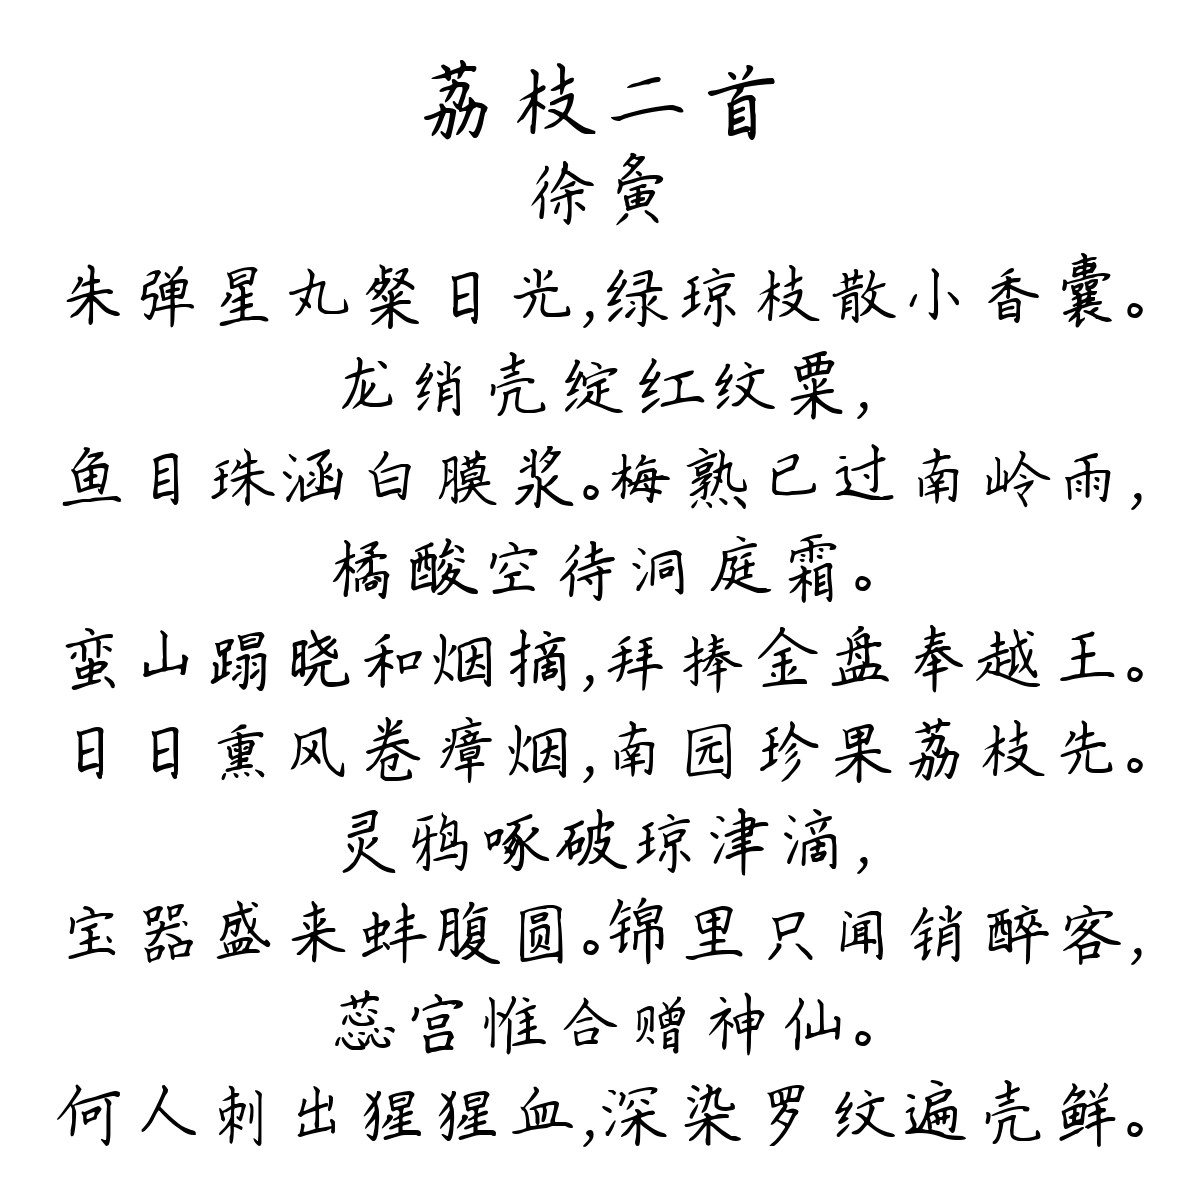 荔枝二首
徐夤
朱弹星丸粲日光,绿琼枝散小香囊。
龙绡壳绽红纹粟,
鱼目珠涵白膜浆。梅熟已过南岭雨,
橘酸空待洞庭霜。
蛮山蹋晓和烟摘,拜捧金盘奉越王。
日日熏风卷瘴烟,南园珍果荔枝先。
灵鸦啄破琼津滴,
宝器盛来蚌腹圆。锦里只闻销醉客,
蕊宫惟合赠神仙。
何人刺出猩猩血,深染罗纹遍壳鲜。